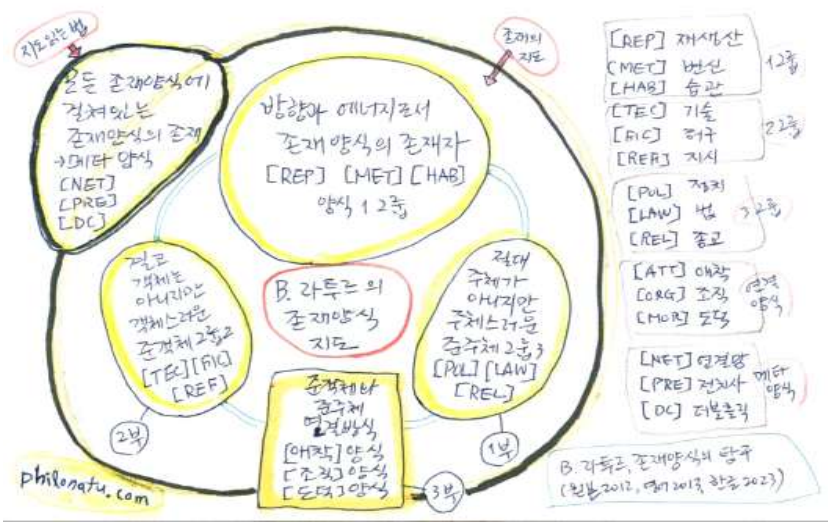 지도읽는 법
모든 존재양식에
걸쳐있는
존재양식의 존재
→메타 양식
[NET]
[PRE]
[DC]
존재의
지도
방향과 에너지로서
존재양식의 존재자
[REP] [MET] [HAB]
양식 1 그룹
결코
객체는
아니지만
객체스러운
준객체 그룹 2
[TEC] [FIC]
[REF]
2부
B. 라투르의
존재양식
지도
절대
주체가
아니지만
주체스러운
준주체 그룹 3
[POL] [LAW]
[REL]
1부
준객체와
준주체
연결방식
[애착] 양식
[조직] 양식
[도덕] 양식
3부
philonatu.com
[REP] 재생산
[MET] 변신
[HAB] 습관
1그룹
[TEC] 기술
[FIC] 허구
[REF] 지식
2그룹
[POL] 정치
[LAW] 법
[REL] 종교
3그룹
[ATT] 애착
[ORG] 조직
[MOR] 도덕
연결
양식
[NET] 연결망
[PRE] 전치사
[DC] 더블클릭
메타
양식
B. 라투르, 존재양식의 탐구
(원본2012, 영어2013, 한글2023)